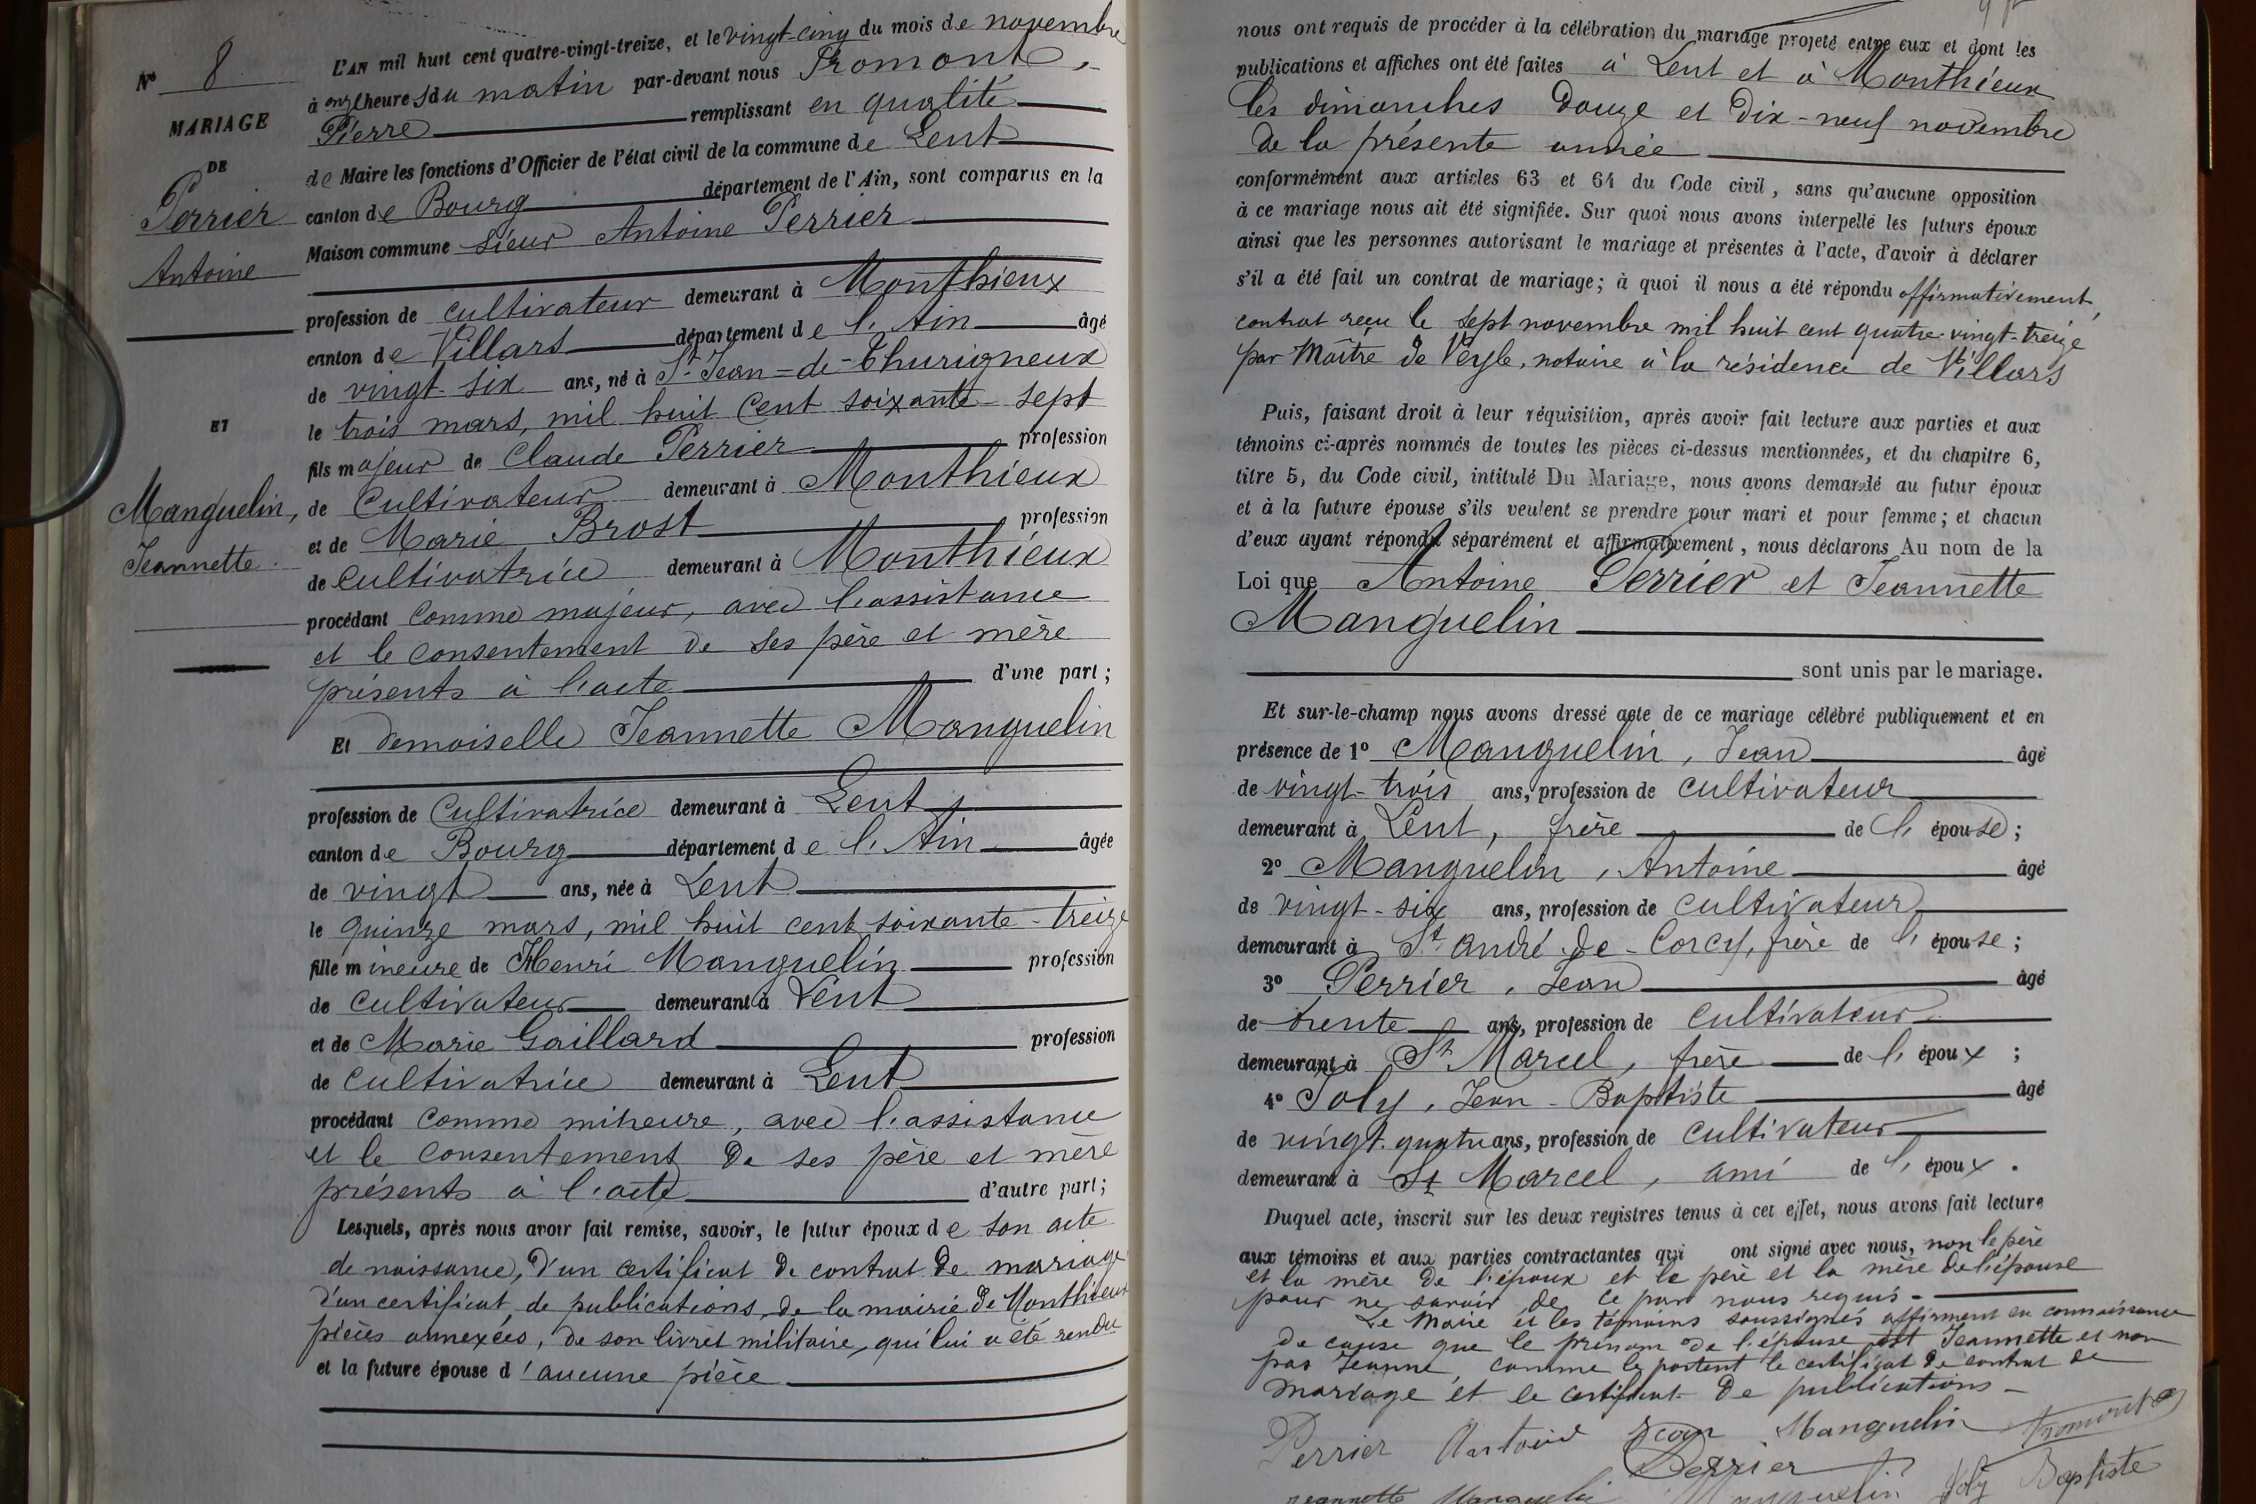 N° 8
MARIAGE
DE
Perrier
Antoine
ET
Manguelin,
Jeannette
L'AN mil huit cent quatre-vingt-treize, et le vingt-cinq du mois de novembre
à onze heures du matin par-devant nous Promont
Pierre remplissant en qualité
de Maire les fonctions d'Officier de l'état civil de la commune de Lent
canton de Bourg département de l'Ain, sont comparus en la
Maison commune sieur Antoine Perrier
profession de cultivateur demeurant à Monthieux
canton de Villars département de l'Ain âgé
de vingt-six ans, né à St-Jean-de-Thurigneux
le trois mars, mil huit cent soixante-sept
fils majeur de Claude Perrier profession
de Cultivateur demeurant à Monthieux
et de Marie Brost profession
de cultivatrice demeurant à Monthieux
procédant comme majeur, avec l'assistance
et le consentement de ses père et mère
présents à l'acte d'une part ;
Et demoiselle Jeannette Manguelin
profession de Cultivatrice demeurant à Lent
canton de Bourg département de l'Ain âgée
de vingt ans, née à Lent
le quinze mars, mil huit cent soixante-treize
fille mineure de Henri Manguelin profession
de cultivateur demeurant à Lent
et de Marie Gaillard profession
de cultivatrice demeurant à Lent
procédant comme mineure, avec l'assistance
et le consentement de ses père et mère
présents à l'acte d'autre part ;
Lesquels, après nous avoir fait remise, savoir, le futur époux de son acte
de naissance, d'un certificat de contrat de mariage
d'un certificat de publications de la mairie de Monthieux
pièces annexées, de son livret militaire, qui lui a été rendu
et la future épouse d'aucune pièce
nous ont requis de procéder à la célébration du mariage projeté entre eux et dont les
publications et affiches ont été faites à Lent et à Monthieux
les dimanches Douze et Dix-neuf novembre
de la présente année
conformément aux articles 63 et 64 du Code civil, sans qu'aucune opposition
à ce mariage nous ait été signifiée. Sur quoi nous avons interpellé les futurs époux
ainsi que les personnes autorisant le mariage et présentes à l'acte, d'avoir à déclarer
s'il a été fait un contrat de mariage ; à quoi il nous a été répondu affirmativement,
contrat reçu le sept novembre mil huit cent quatre-vingt-treize
par Maître de Veyle, notaire à la résidence de Villars
Puis, faisant droit à leur réquisition, après avoir fait lecture aux parties et aux
témoins ci-après nommés de toutes les pièces ci-dessus mentionnées, et du chapitre 6,
titre 5, du Code civil, intitulé Du Mariage, nous avons demandé au futur époux
et à la future épouse s'ils veulent se prendre pour mari et pour femme ; et chacun
d'eux ayant répondu séparément et affirmativement, nous déclarons Au nom de la
Loi que Antoine Perrier et Jeannette
Manguelin
sont unis par le mariage.
Et sur-le-champ nous avons dressé acte de ce mariage célébré publiquement et en
présence de 1° Manguelin, Jean âgé
de vingt-trois ans, profession de cultivateur
demeurant à Lent, frère de l'épouse ;
2° Manguelin, Antoine âgé
de vingt-six ans, profession de cultivateur
demeurant à St André-de-Corcy, frère de l'épouse ;
3° Perrier, Jean âgé
de trente ans, profession de cultivateur
demeurant à St Marcel, frère de l'époux ;
4° Joly, Jean-Baptiste âgé
de vingt-quatre ans, profession de cultivateur
demeurant à St Marcel, ami de l'époux.
Duquel acte, inscrit sur les deux registres tenus à cet effet, nous avons fait lecture
aux témoins et aux parties contractantes qui ont signé avec nous, non le père
et la mère de l'époux et le père et la mère de l'épouse
pour ne savoir de ce par nous requis.
Le Maire et les témoins soussignés affirment en connaissance
de cause que le prénom de l'épouse est Jeannette et non
pas Jeanne, comme le portent le certificat de contrat de
mariage et le certificat de publications.
Perrier Antoine Jean Manguelin Promont
Perrier
Jeannette Manguelin Manguelin Joly Baptiste